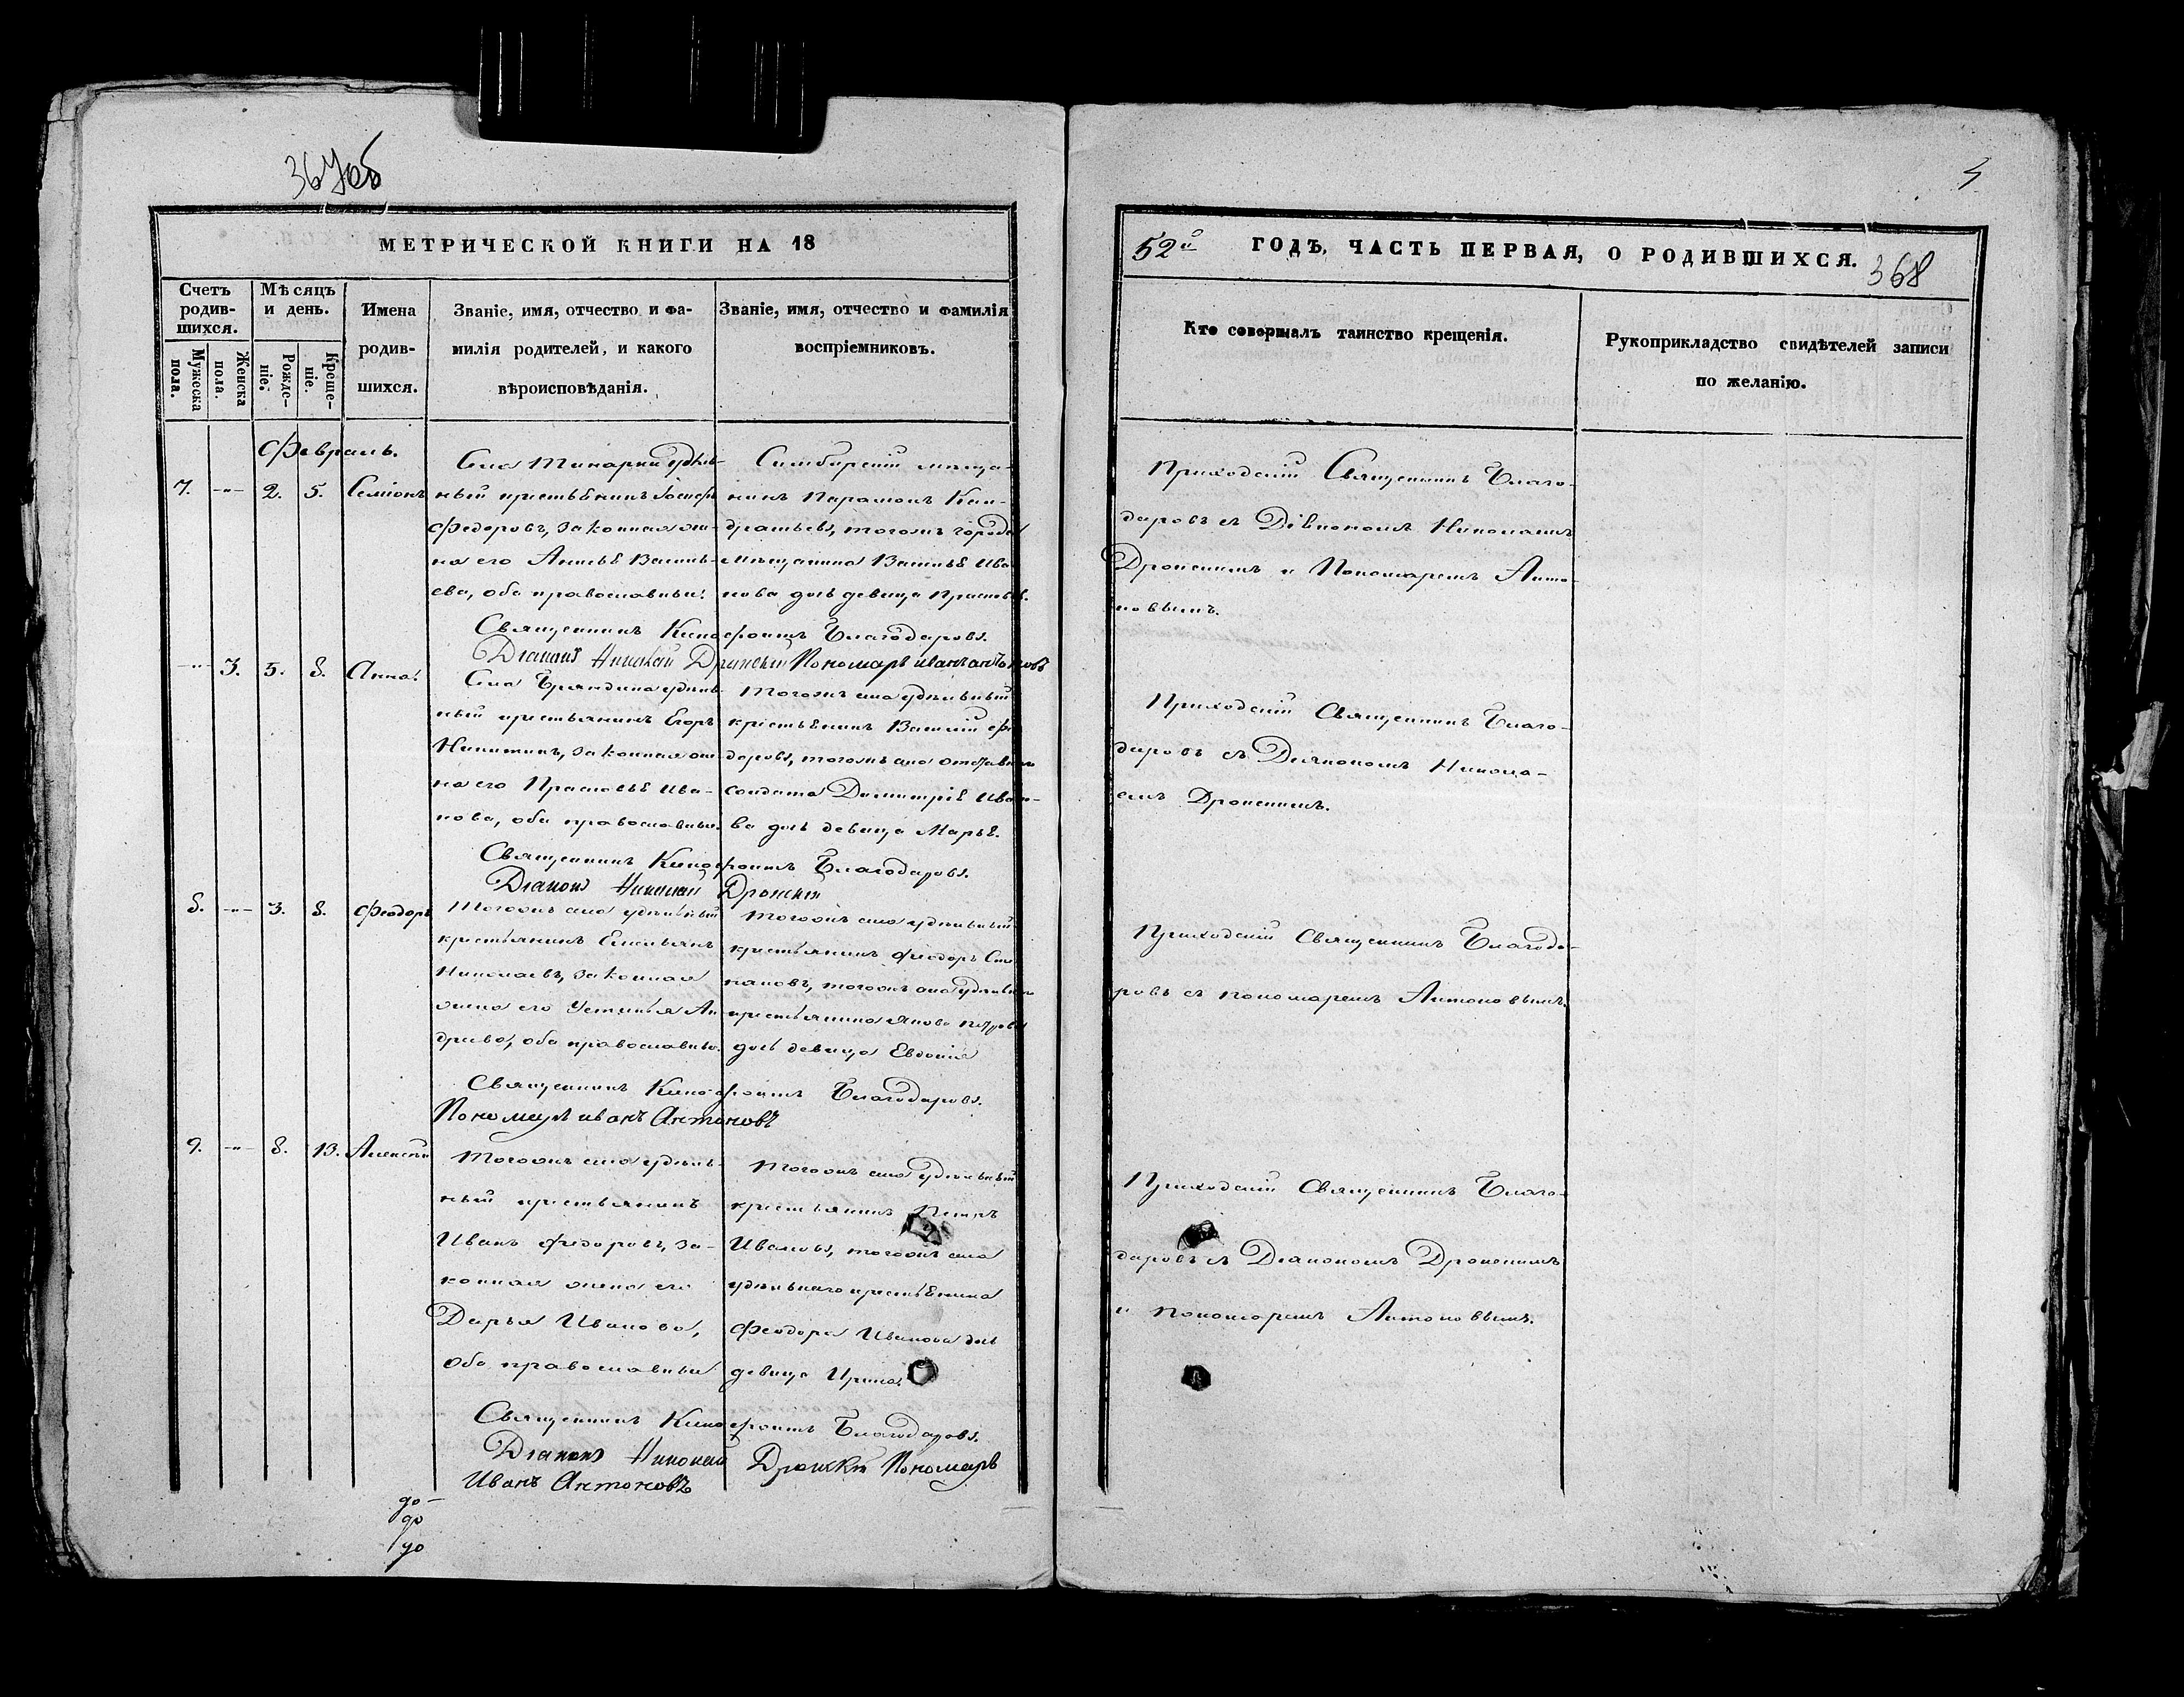 367об
МЕТРИЧЕСКОЙ КНИГИ НА 18
Счетъ родив-шихся.
Мужеска пола.
Женска пола.
Мѣсяцъ и день.
Рожде-ніе.
Креще-ніе.
Имена родив-шихся.
Званіе, имя, отчество и фа-
милія родителей, и какого
вѣроисповѣданія.
Званіе, имя, отчество и фамилія
воспріемниковъ.
Февраль.
7. -"- 2. 5. Семіонъ
Села удѣль-
ный крестьѣнинъ
Федоровъ, законная же-
на его Василь-
ева, оба православныи.
Симбирскій меща-
нинъ Парамонъ Кон-
дратьевъ, тогожъ города
мещанина Ива-
нова дочь девица
Священникъ Ксенофонтъ Благодаровъ.
Діаконъ Николай Дронскій Пономарь иванъ антоновъ
-"- 3. 5. 8. Анна.
Села удѣль-
ный крестьянинъ Егоръ
Никитинъ, законная же-
на его Прасковьѣ Ива-
нова, оба православныи.
Тогожъ села удѣльный
крестьѣнинъ Василій Фе
доровъ, тогожъ села отставнаго
солдата Димитріѣ Ивано-
ва дочь девица Марьѣ.
Священникъ Ксенофонтъ Благодаровъ.
Діаконъ Николай Дронскій
8. -"- 3. 8. Феодоръ
Тогожъ села удѣльный
крестьянинъ Емельянъ
Николаевъ, законная
жена его Устинья Ан-
дреева, оба православныи.
Тогожъ села удѣльный
крестьянинъ Феодоръ Сте
пановъ, тогожъ села удѣльнаго
крестьянина Якова Петрова
дочь девица Евдокія
Священникъ Ксенофонтъ Благодаровъ.
Пономарь иванъ Антоновъ
9. -"- 8. 13. Алексѣй
Тогожъ села удѣль-
ный крестьянинъ
Иванъ Федоровъ, за-
конная жена его
Дарья Иванова,
оба православныи
Тогожъ села удѣльный
крестьянинъ Петръ
Ивановъ, тогожъ села
удѣльнаго крестьѣнина
Феодора Иванова дочь
девица Ирина.
Священникъ Ксенофонтъ Благодаровъ.
Діаконъ Николай Дронскій Пономарь
Иванъ Антоновъ
до-
до
до
52й ГОДЪ, ЧАСТЬ ПЕРВАЯ, О РОДИВШИХСЯ.
368
Кто совершалъ таинство крещенія.
Рукоприкладство свидѣтелей записи
по желанію.
Приходскій Священникъ Благо-
даровъ съ Діакономъ Николаемъ
Дронскимъ и Пономаремъ Анто-
новымъ.
Приходскій Священникъ Благо-
даровъ съ Діакономъ Никола-
емъ Дронскимъ.
Приходскій Священникъ Благода-
ровъ съ пономаремъ Антоновымъ.
Приходскій Священникъ Благо-
даровъ съ Діакономъ Дронскимъ
и пономаремъ Антоновымъ.